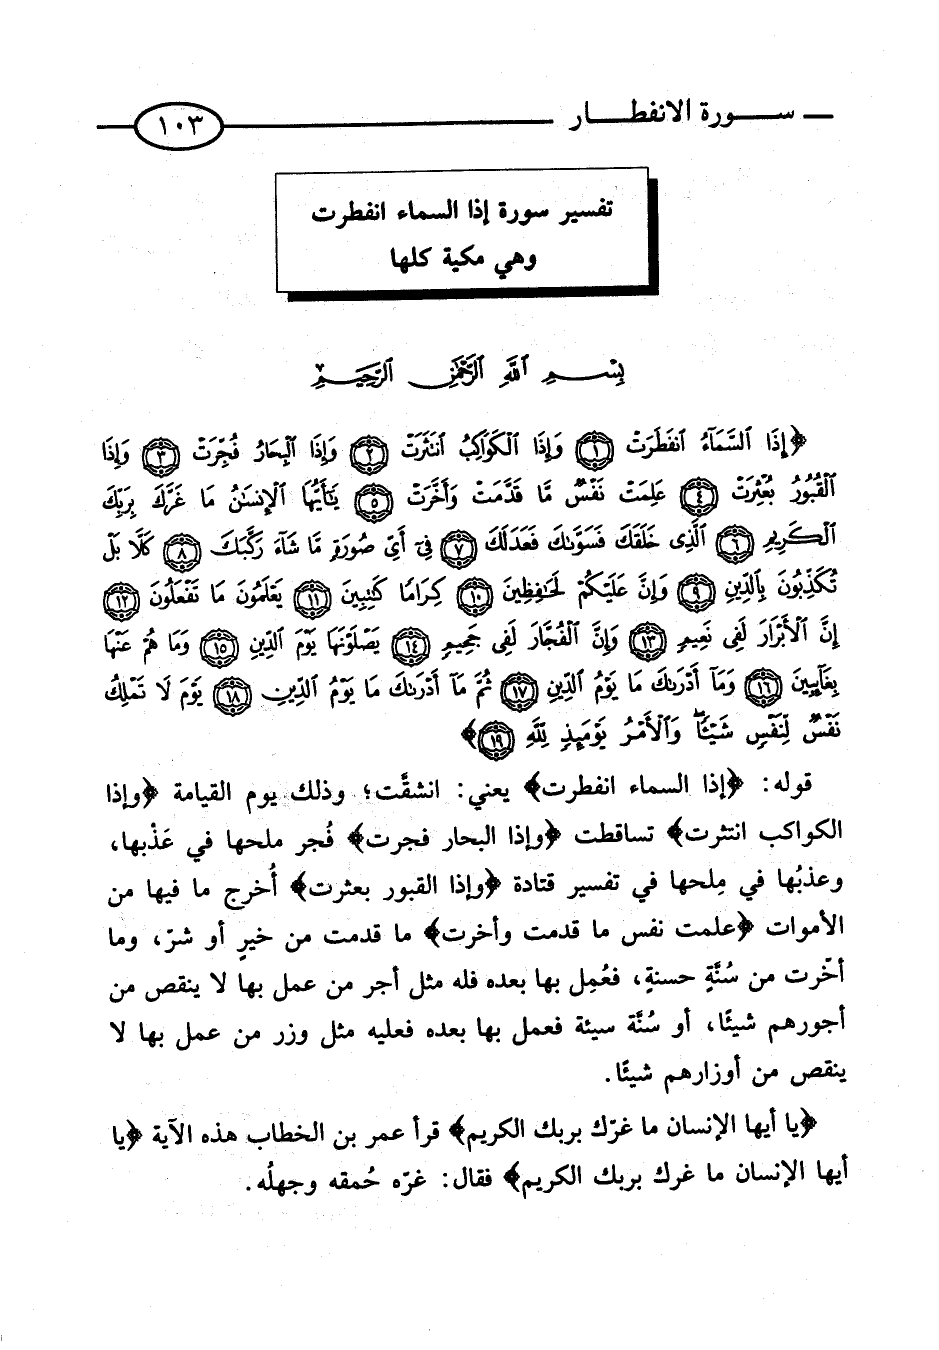 سـورة الانفطـار
١٠٣
تفسير سورة إذا السماء انفطرت
وهي مكية كلها
بِسْمِ ٱللَّهِ ٱلرَّحْمَٰنِ ٱلرَّحِيمِ
﴿إِذَا ٱلسَّمَآءُ ٱنفَطَرَتْ ۝١ وَإِذَا ٱلْكَوَاكِبُ ٱنتَثَرَتْ ۝٢ وَإِذَا ٱلْبِحَارُ فُجِّرَتْ ۝٣ وَإِذَا
ٱلْقُبُورُ بُعْثِرَتْ ۝٤ عَلِمَتْ نَفْسٌ مَّا قَدَّمَتْ وَأَخَّرَتْ ۝٥ يَٰٓأَيُّهَا ٱلْإِنسَٰنُ مَا غَرَّكَ بِرَبِّكَ
ٱلْكَرِيمِ ۝٦ ٱلَّذِى خَلَقَكَ فَسَوَّىٰكَ فَعَدَلَكَ ۝٧ فِىٓ أَىِّ صُورَةٍ مَّا شَآءَ رَكَّبَكَ ۝٨ كَلَّا بَلْ
تُكَذِّبُونَ بِٱلدِّينِ ۝٩ وَإِنَّ عَلَيْكُمْ لَحَٰفِظِينَ ۝١٠ كِرَامًا كَٰتِبِينَ ۝١١ يَعْلَمُونَ مَا تَفْعَلُونَ ۝١٢
إِنَّ ٱلْأَبْرَارَ لَفِى نَعِيمٍ ۝١٣ وَإِنَّ ٱلْفُجَّارَ لَفِى جَحِيمٍ ۝١٤ يَصْلَوْنَهَا يَوْمَ ٱلدِّينِ ۝١٥ وَمَا هُمْ عَنْهَا
بِغَآئِبِينَ ۝١٦ وَمَآ أَدْرَىٰكَ مَا يَوْمُ ٱلدِّينِ ۝١٧ ثُمَّ مَآ أَدْرَىٰكَ مَا يَوْمُ ٱلدِّينِ ۝١٨ يَوْمَ لَا تَمْلِكُ
نَفْسٌ لِّنَفْسٍ شَيْـًٔا ۖ وَٱلْأَمْرُ يَوْمَئِذٍ لِّلَّهِ ۝١٩﴾
قوله: ﴿إذا السماء انفطرت﴾ يعني: انشقَّت؛ وذلك يوم القيامة ﴿وإذا
الكواكب انتثرت﴾ تساقطت ﴿وإذا البحار فجرت﴾ فُجر ملحها في عَذْبها،
وعذبُها في مِلحها في تفسير قتادة ﴿وإذا القبور بعثرت﴾ أُخرج ما فيها من
الأموات ﴿علمت نفس ما قدمت وأخرت﴾ ما قدمت من خيرٍ أو شرّ، وما
أخّرت من سُنَّةٍ حسنةٍ، فعُمِل بها بعده فله مثل أجر من عمل بها لا ينقص من
أجورهم شيئًا، أو سُنَّة سيئة فعمل بها بعده فعليه مثل وزر من عمل بها لا
ينقص من أوزارهم شيئًا.
﴿يا أيها الإنسان ما غرّك بربك الكريم﴾ قرأ عمر بن الخطاب هذه الآية ﴿يا
أيها الإنسان ما غرك بربك الكريم﴾ فقال: غرّه حُمقه وجهلُه.